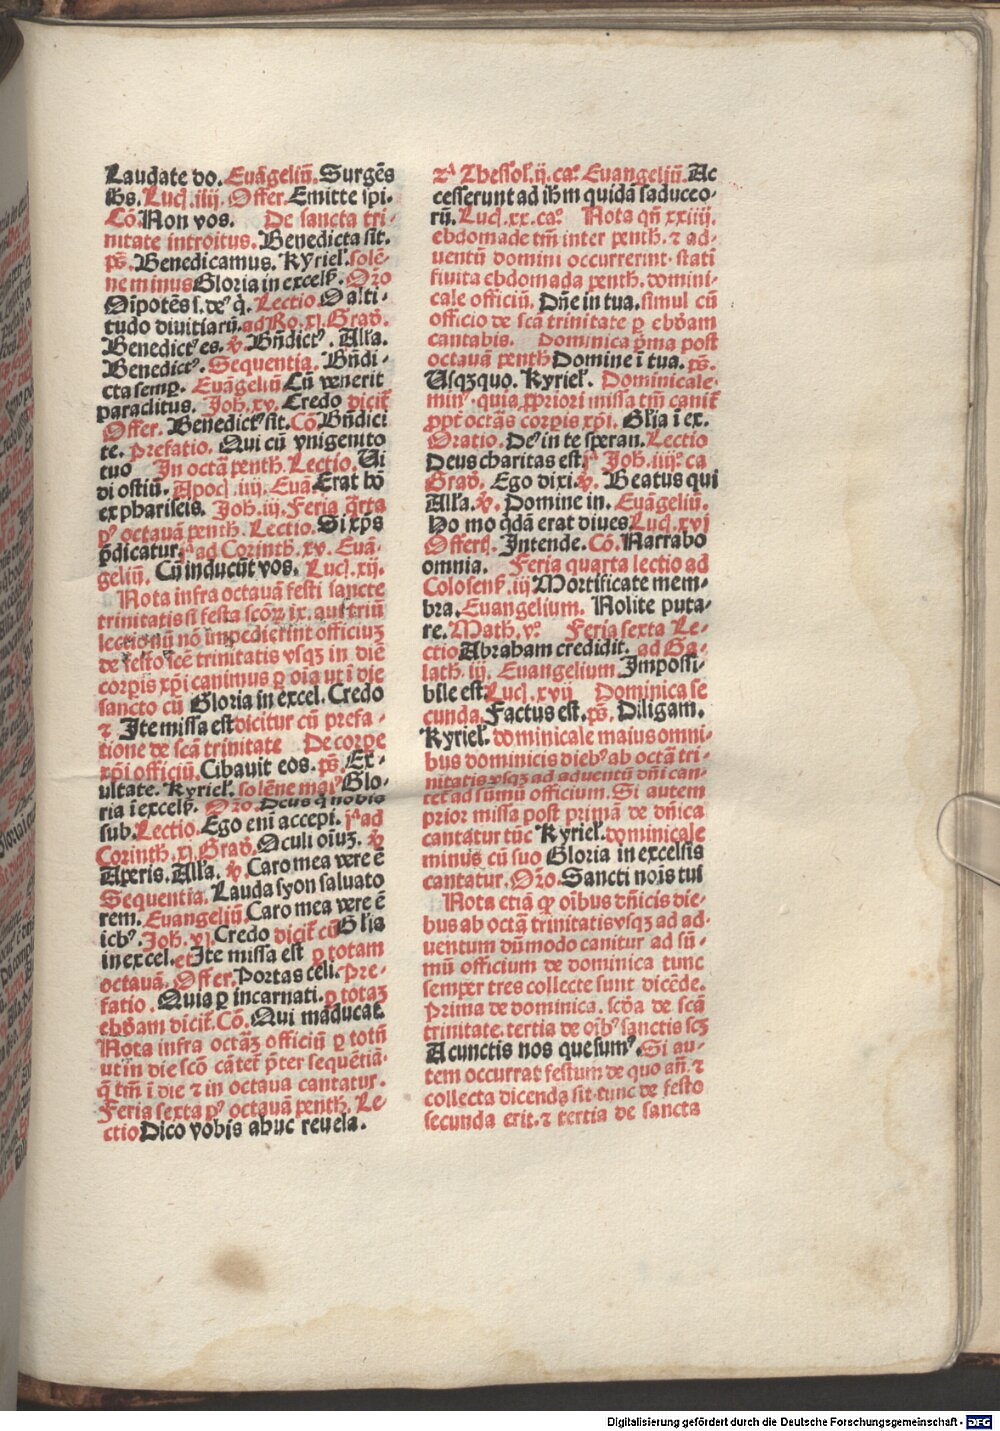 Laudate do. Euãgeliũ. Surgẽs
ihs. Luc. iiij. Offer. Emitte spi.
Cõ. Non vos. De sancta tri-
nitate introitus. Benedicta sit.
ps̃. Benedicamus. Kyriel. solẽ-
ne minus Gloria in excels. Orõ
Oĩpotẽs s. de' q̃. Lectio. O alti-
tudo diuitiarũ. ad Ro. xj. Grad.
Benedict' es. v. Bñdict'. Alla.
Benedict'. Sequentia. Bñdi-
cta semp. Euãgeliũ Cũ venerit
paraclitus. Joh. xv. Credo dicit
Offer. Benedict' sit. Cõ. Bñdici
te. Prefatio. Qui cũ vnigenito
tuo In octa penth. Lectio. Vi
di ostiũ. Apoc. iiij. Euã. Erat hõ
ex phariseis. Joh. iij. Feria q̃rta
p' octauã penth. Lectio. Si xps
p̃dicatur. j' ad Corinth. xv. Euã-
geliũ. Cũ inducũt vos. Luc. xij.
Nota infra octauã festi sancte
trinitatis si festa scõʀ ix. aut triũ
lectionũ nõ impedierint officiuʒ
de festo scẽ trinitatis vsqʒ in diẽ
corpis xp̃i canimus p oĩa ut i die
sancto cũ Gloria in excel. Credo
⁊ Jte missa est dicitur cũ prefa-
tione de scã trinitate De corpe
xp̃i officiũ. Cibauit eos. ps̃. Ex-
ultate. Kyriel. solẽne mai' Glo-
ria ĩ excels. Orõ. Deus q̃ nobis
sub. Lectio. Ego eni accepi. j' ad
Corinth. xj. Grad. Oculi oĩuʒ. v
Aperis. Alla. v. Caro mea vere ẽ
Sequentia. Lauda syon saluato
rem. Euangeliũ. Caro mea vere ẽ
icb'. Joh. vj. Credo dicit cũ Glia
in excel. et Jte missa est p totam
octauã. Offer. Portas celi. Pre-
fatio. Quia p incarnati. p totaʒ
ebdam dicit. Cõ. Qui mãducat.
Nota infra octaʒ officiũ p totũ
ut in die scõ cãtet p̃ter sequẽtiã.
q̃ tm̃ ĩ die ⁊ in octaua cantatur.
Feria sexta p' octauã penth. Le
ctio Dico vobis abuc reuela.
2' Thessol. ij. ca. Euangeliũ. Ac
cesserunt ad ihm quidã saduceo-
rũ. Luc. xx. ca' Nota qñ xxiiij.
ebdomade tm̃ inter penth. ⁊ ad-
uentũ domini occurrerint. stati
finita ebdomada penth. domini-
cale officiũ. Dñe in tua. simul cũ
officio de scã trinitate p ebdam
cantabis. Dominica p̃ma post
octauã penth Domine ĩ tua. ps̃.
Vsqʒquo. Kyriel. Dominicale
min'. quia p̃priori missa tm̃ canit
p̃pt octãs corpis xp̃i. Glia ĩ ex.
Oratio. De' in te speran. Lectio
Deus charitas est. j' Joh. iiij. ca
Grad. Ego dixi. v. Beatus qui
Alla. v. Domine in. Euãgeliũ.
Ho mo qdã erat diues. Luc. xvj
Offert. Jntende. Cõ. Narrabo
omnia. Feria quarta lectio ad
Colosens. iij Mortificate mem-
bra. Euangelium. Nolite puta-
re. Math. v. Feria sexta Le-
ctio Abraham credidit. ad Ga-
lath. iij. Euangelium Jmpossi-
bile est. Luc. xvij Dominica se
cunda. Factus est. ps̃. Diligam.
Kyriel. dominicale maius omni-
bus dominicis dieb' ab octa tri-
nitatis vsqʒ ad aduentũ dñi can-
tet ad sumũ officium. Si autem
prior missa post primã de dñica
cantatur tũc Kyriel. dominicale
minus cũ suo Gloria in excelsis
cantatur. Orõ. Sancti nois tui
Nota etiã qp oĩbus dñicis die-
bus ab octa trinitatis vsqʒ ad ad-
uentum dũmodo canitur ad sũ-
mũ officium de dominica tunc
semper tres collecte sunt dicẽde.
Prima de dominica. scda de scã
trinitate. tertia de oĩb' sanctis scʒ
A cunctis nos quesum'. Si au-
tem occurrat festum de quo añ. ⁊
collecta dicenda sit. tunc de festo
secunda erit. ⁊ tertia de sancta
Digitalisierung gefördert durch die Deutsche Forschungsgemeinschaft - DFG